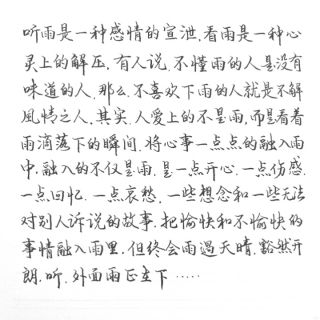 听雨是一种感情的宣泄,看雨是一种心
灵上的解压,有人说,不懂雨的人是没有
味道的人,那么,不喜欢下雨的人就是不解
风情之人,其实,人爱上的不是雨,而是看着
雨滴落下的瞬间,将心事一点点的融入雨
中,融入的不仅是雨,是一点开心,一点伤感,
一点回忆,一点哀愁,一些想念和一些无法
对别人诉说的故事,把愉快和不愉快的
事情融入雨里,但终会雨过天晴,豁然开
朗,听,外面雨正在下……